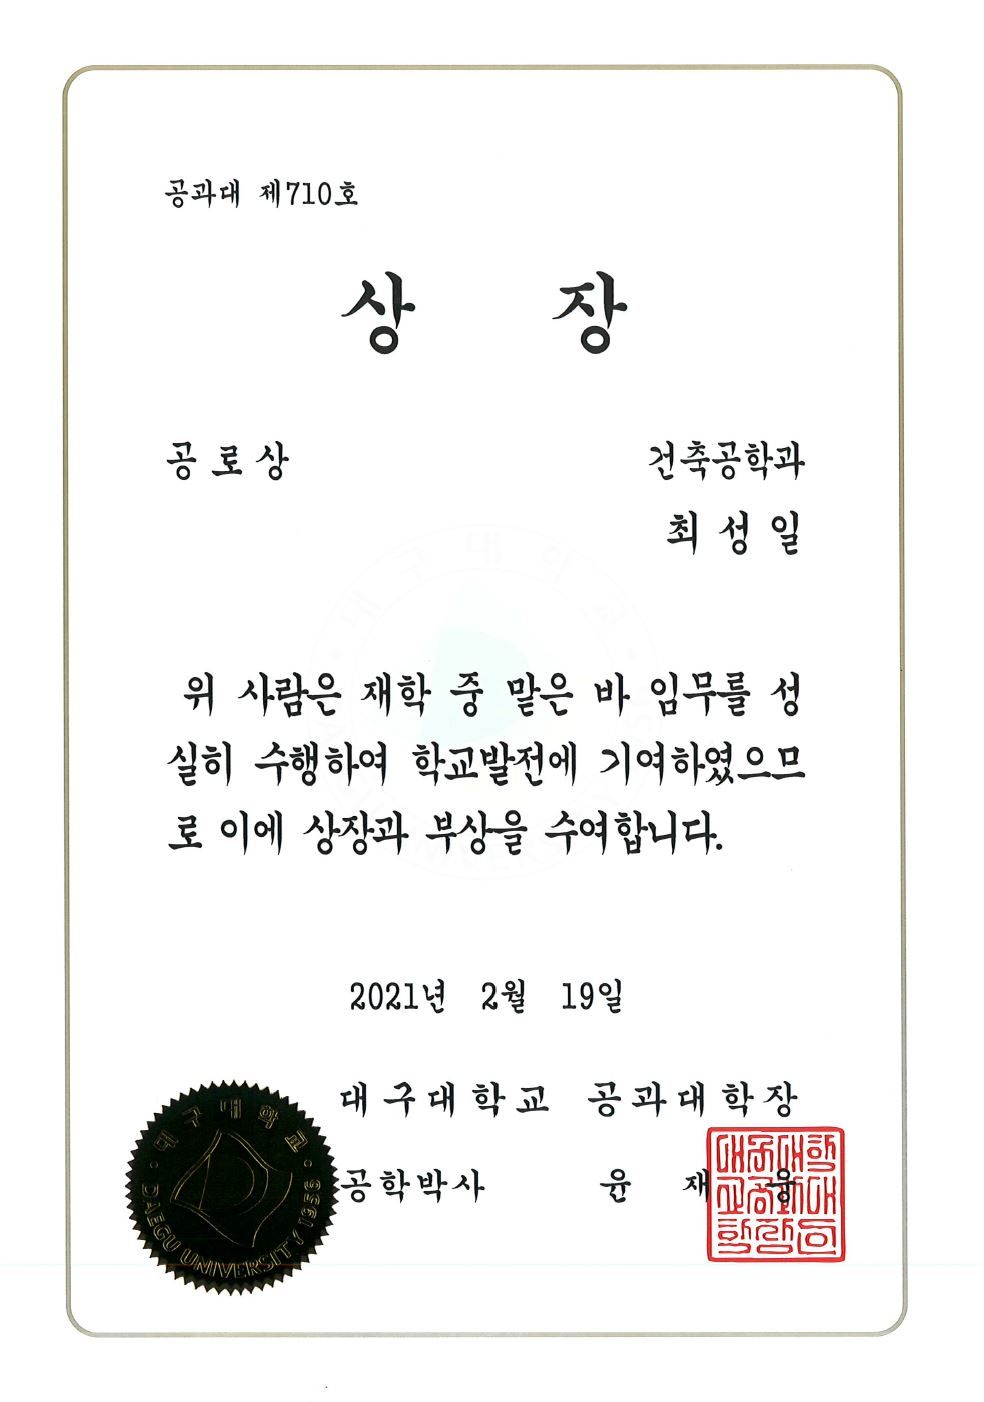 공과대 제710호
상 장
공로상 건축공학과
최성일
위 사람은 재학 중 맡은 바 임무를 성
실히 수행하여 학교발전에 기여하였으므
로 이에 상장과 부상을 수여합니다.
2021년 2월 19일
대구대학교 공과대학장
공학박사 윤재웅
대구대학교
DAEGU UNIVERSITY 1956
대구대학교공과대학장인